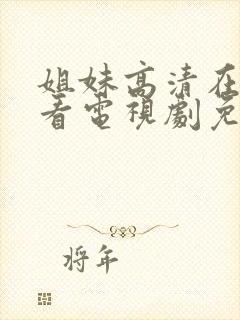 姐妹高清在
看電視劇免
将年